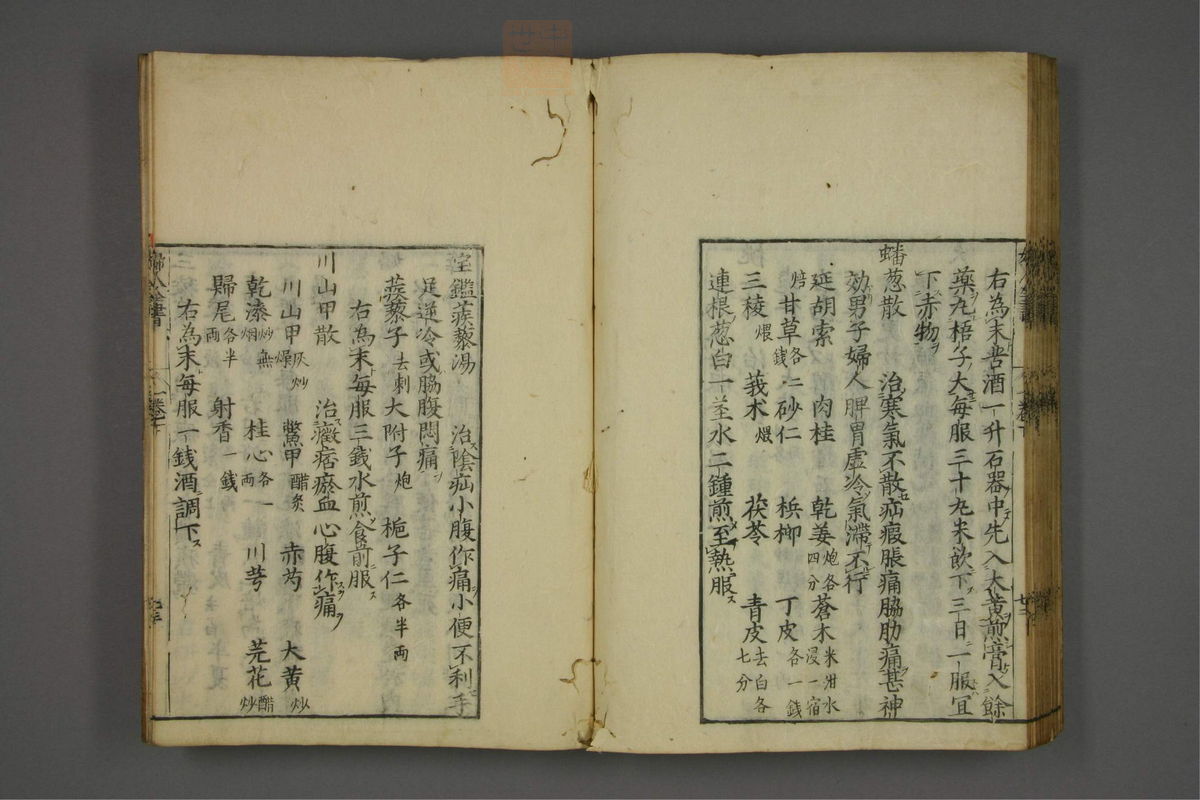 右為末苦酒一升石器中先入大黄煎膏入餘
藥丸梧子大每服三十丸米飲下三日一服宜
下赤物ヲ
蟠葱散　治寒氣不散疝瘕脹痛脇肋痛甚神
効男子婦人脾胃虛冷氣滯不行
延胡索　肉桂　乾姜炮各四分　蒼朮米泔水浸一宿
焙　甘草各二錢　砂仁　梹榔　丁皮各一錢
三稜煨　莪朮煨　茯苓　青皮去白各七分
連根葱白一莖水二鍾煎至熱服ス
宝鑑蒺藜湯　治陰疝小腹作痛小便不利手
足逆冷或脇腹悶痛
蒺藜子去刺　大附子炮　梔子仁各半兩
右為末每服三錢水煎食前服ス
川山甲散　治癥痞瘀血心腹作痛ヲ
川山甲灰炒燥　鱉甲醋炙　赤芍　大黄炒
乾漆炒無烟　桂心各一兩　川芎　芫花醋炒
歸尾各半兩　射香一錢
右為末每服一錢酒調下ス
婦人全書
卷下